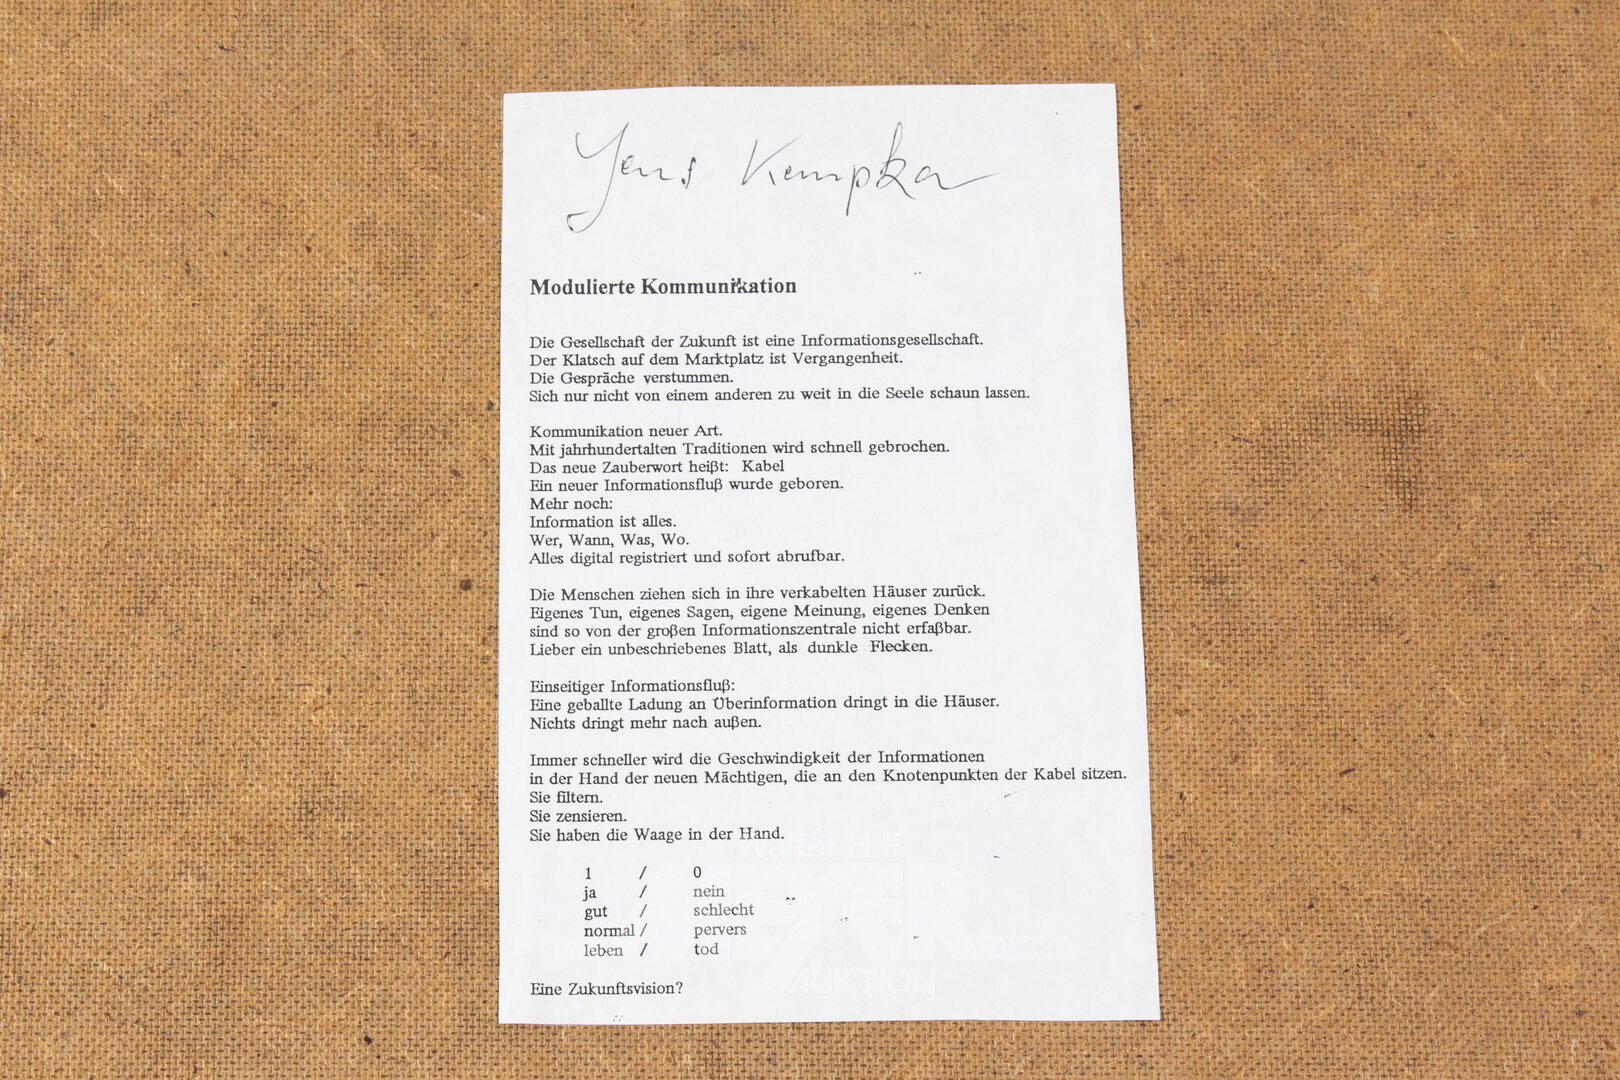 Jens Kempka
Modulierte Kommunikation
Die Gesellschaft der Zukunft ist eine Informationsgesellschaft.
Der Klatsch auf dem Marktplatz ist Vergangenheit.
Die Gespräche verstummen.
Sich nur nicht von einem anderen zu weit in die Seele schaun lassen.
Kommunikation neuer Art.
Mit jahrhundertalten Traditionen wird schnell gebrochen.
Das neue Zauberwort heißt: Kabel
Ein neuer Informationsfluß wurde geboren.
Mehr noch:
Information ist alles.
Wer, Wann, Was, Wo.
Alles digital registriert und sofort abrufbar.
Die Menschen ziehen sich in ihre verkabelten Häuser zurück.
Eigenes Tun, eigenes Sagen, eigene Meinung, eigenes Denken
sind so von der großen Informationszentrale nicht erfaßbar.
Lieber ein unbeschriebenes Blatt, als dunkle Flecken.
Einseitiger Informationsfluß:
Eine geballte Ladung an Überinformation dringt in die Häuser.
Nichts dringt mehr nach außen.
Immer schneller wird die Geschwindigkeit der Informationen
in der Hand der neuen Mächtigen, die an den Knotenpunkten der Kabel sitzen.
Sie filtern.
Sie zensieren.
Sie haben die Waage in der Hand.
Walter H.F.
MEYER
GMBH
AUKTION
1 / 0
ja / nein
gut / schlecht
normal / pervers
leben / tod
Eine Zukunftsvision?